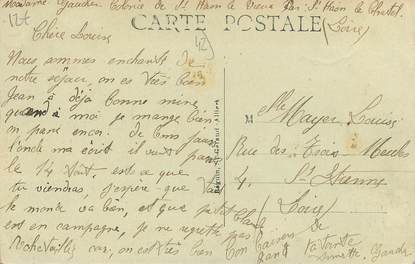 Madame Gaudier Colonie de St Haon le Vieux par St Haon le Chatel
(Loire)
12€
CARTE POSTALE
42
Chère Louise
Nous sommes enchanté de
notre séjour, on es très bien
Jean a déjà bonne mine
quand à moi je mange bien
on passe encor de bons jours
l'oncle ma écrit il vous
le 14 Août est ce que
tu viendras, j'espère que tout
le monde va bien, et que petit Claude
est en campagne, je ne regrette pas
Rochetaillée car, on est très bien Bon Baisers de
Jean
ta tante
Annette Gaudier
M elle Mayer Louise
Rue des Trois Meules
4, St Etienne
(Loire)